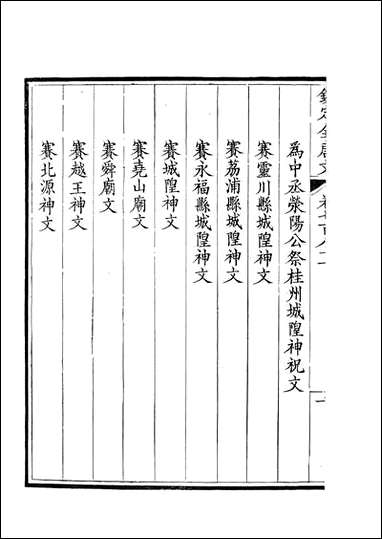 欽定全唐文
卷七百八十一
為中丞滎陽公祭桂州城隍神祝文
賽靈川縣城隍神文
賽荔浦縣城隍神文
賽永福縣城隍神文
賽城隍神文
賽堯山廟文
賽舜廟文
賽越王神文
賽北源神文